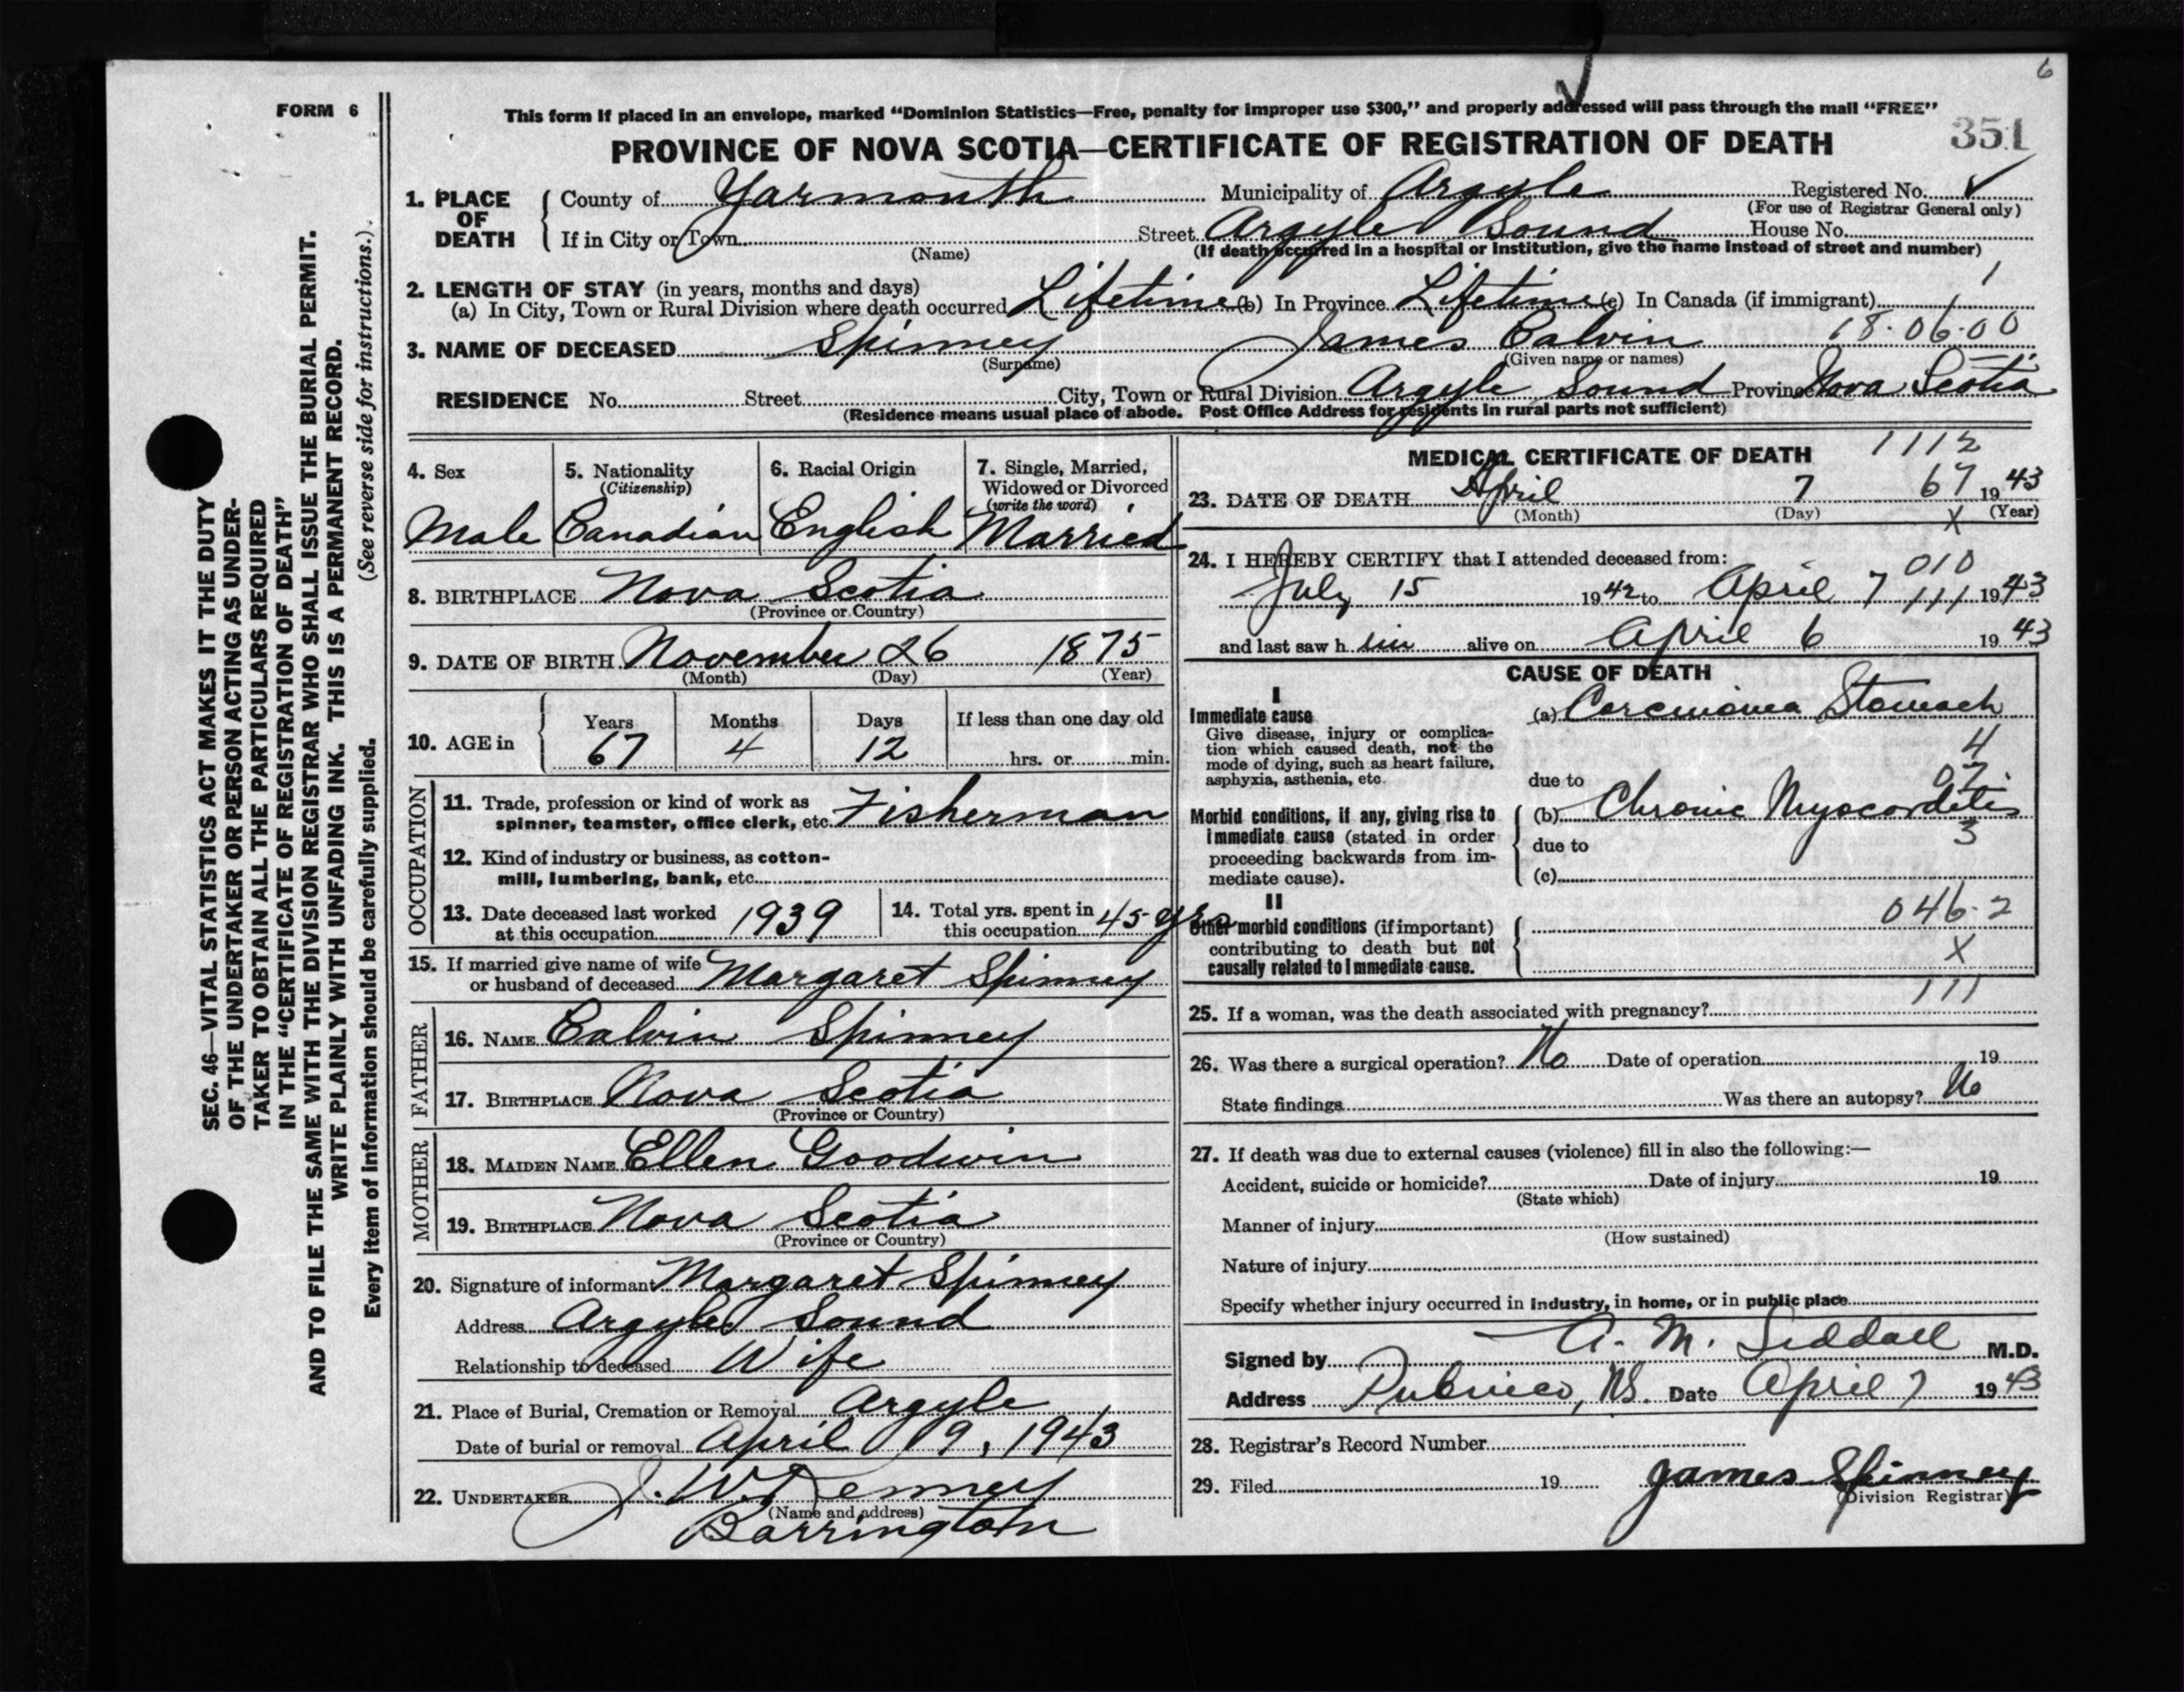 6
FORM 6
This form if placed in an envelope, marked "Dominion Statistics—Free, penalty for improper use $300," and properly addressed will pass through the mail "FREE"
351
PROVINCE OF NOVA SCOTIA—CERTIFICATE OF REGISTRATION OF DEATH
SEC. 46—VITAL STATISTICS ACT MAKES IT THE DUTY
OF THE UNDERTAKER OR PERSON ACTING AS UNDER-
TAKER TO OBTAIN ALL THE PARTICULARS REQUIRED
IN THE "CERTIFICATE OF REGISTRATION OF DEATH"
AND TO FILE THE SAME WITH THE DIVISION REGISTRAR WHO SHALL ISSUE THE BURIAL PERMIT.
WRITE PLAINLY WITH UNFADING INK. THIS IS A PERMANENT RECORD.
(See reverse side for instructions.)
Every item of information should be carefully supplied.
1. PLACE OF DEATH
County of Yarmouth Municipality of Argyle Registered No. ✓
(For use of Registrar General only)
If in City or Town Street Argyle Sound House No.
(Name) (If death occurred in a hospital or institution, give the name instead of street and number)
2. LENGTH OF STAY (in years, months and days) 1
(a) In City, Town or Rural Division where death occurred Lifetime (b) In Province Lifetime (c) In Canada (if immigrant) 1
3. NAME OF DECEASED Spinney James Calvin 18-06-00
(Surname) (Given name or names)
RESIDENCE No. Street City, Town or Rural Division Argyle Sound Province Nova Scotia
(Residence means usual place of abode. Post Office Address for residents in rural parts not sufficient)
4. Sex
Male
5. Nationality
(Citizenship)
Canadian
6. Racial Origin
English
7. Single, Married,
Widowed or Divorced
(write the word)
Married
8. BIRTHPLACE Nova Scotia
(Province or Country)
9. DATE OF BIRTH November 26 1875
(Month) (Day) (Year)
10. AGE in
Years Months Days If less than one day old
67 4 12 hrs. or min.
OCCUPATION
11. Trade, profession or kind of work as
spinner, teamster, office clerk, etc. Fisherman
12. Kind of industry or business, as cotton-
mill, lumbering, bank, etc.
13. Date deceased last worked
at this occupation 1939
14. Total yrs. spent in
this occupation 45 yrs
15. If married give name of wife
or husband of deceased Margaret Spinney
FATHER
16. NAME Calvin Spinney
17. BIRTHPLACE Nova Scotia
(Province or Country)
MOTHER
18. MAIDEN NAME Ellen Goodwin
19. BIRTHPLACE Nova Scotia
(Province or Country)
20. Signature of informant Margaret Spinney
Address Argyle Sound
Relationship to deceased Wife
21. Place of Burial, Cremation or Removal Argyle
Date of burial or removal April 9, 1943
22. UNDERTAKER J. W. Denney
(Name and address)
Barrington
MEDICAL CERTIFICATE OF DEATH 1112
23. DATE OF DEATH April 7 67 1943
(Month) (Day) X (Year)
24. I HEREBY CERTIFY that I attended deceased from:
010
July 15 1942 to April 7 111 1943
and last saw h im alive on April 6 1943
CAUSE OF DEATH
I
Immediate cause
Give disease, injury or complica-
tion which caused death, not the
mode of dying, such as heart failure,
asphyxia, asthenia, etc.
(a) Carcinoma Stomach
4
due to
Morbid conditions, if any, giving rise to
immediate cause (stated in order
proceeding backwards from im-
mediate cause).
(b) Chronic Myocarditis
3
due to
(c)
II
Other morbid conditions (if important)
contributing to death but not
causally related to immediate cause.
046-2
X
111
25. If a woman, was the death associated with pregnancy?
26. Was there a surgical operation? No Date of operation 19
State findings Was there an autopsy? No
27. If death was due to external causes (violence) fill in also the following:—
Accident, suicide or homicide? Date of injury 19
(State which)
Manner of injury
(How sustained)
Nature of injury
Specify whether injury occurred in industry, in home, or in public place
Signed by A. M. Siddall M.D.
Address Pubnico, NS. Date April 7 1943
28. Registrar's Record Number
29. Filed 19 James Spinney
(Division Registrar)